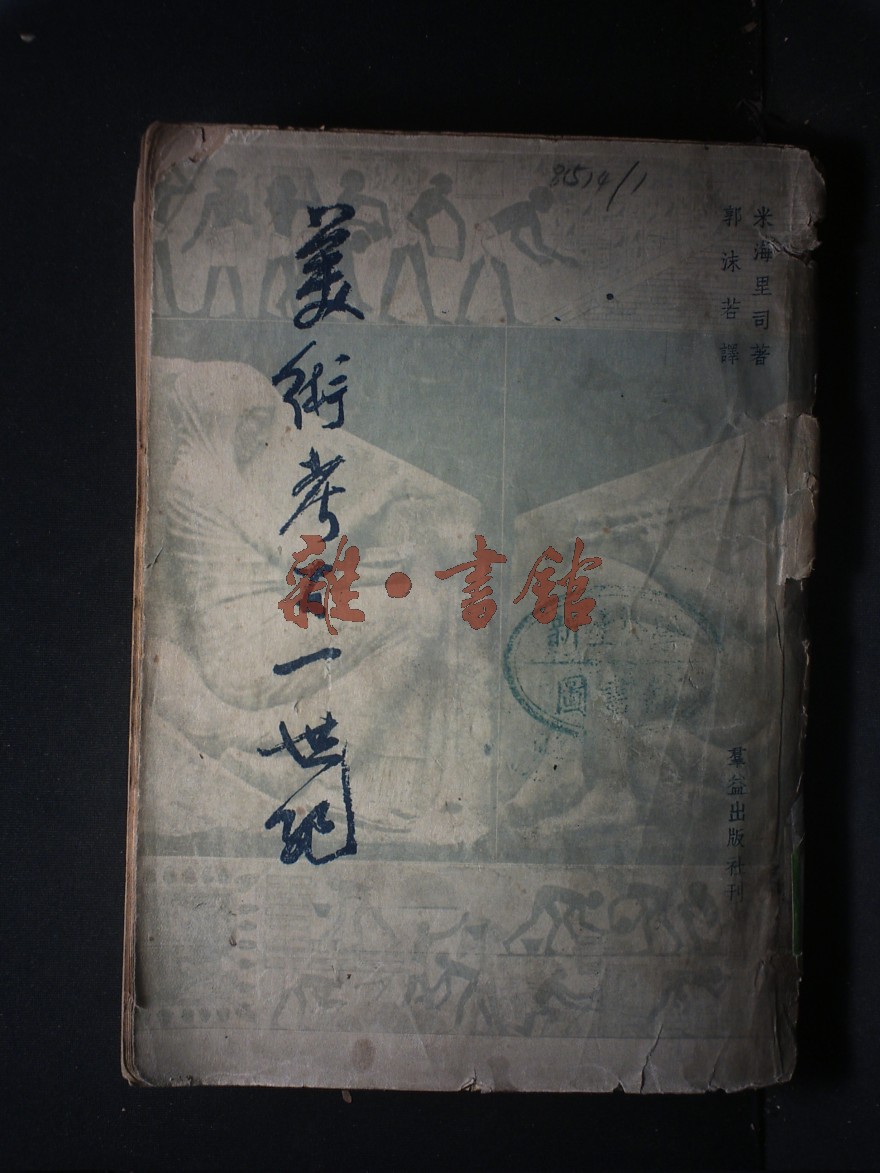 81514/1
米海里司著
郭沫若譯
美術考古一世紀
雜·書館
圖書
羣益出版社刊